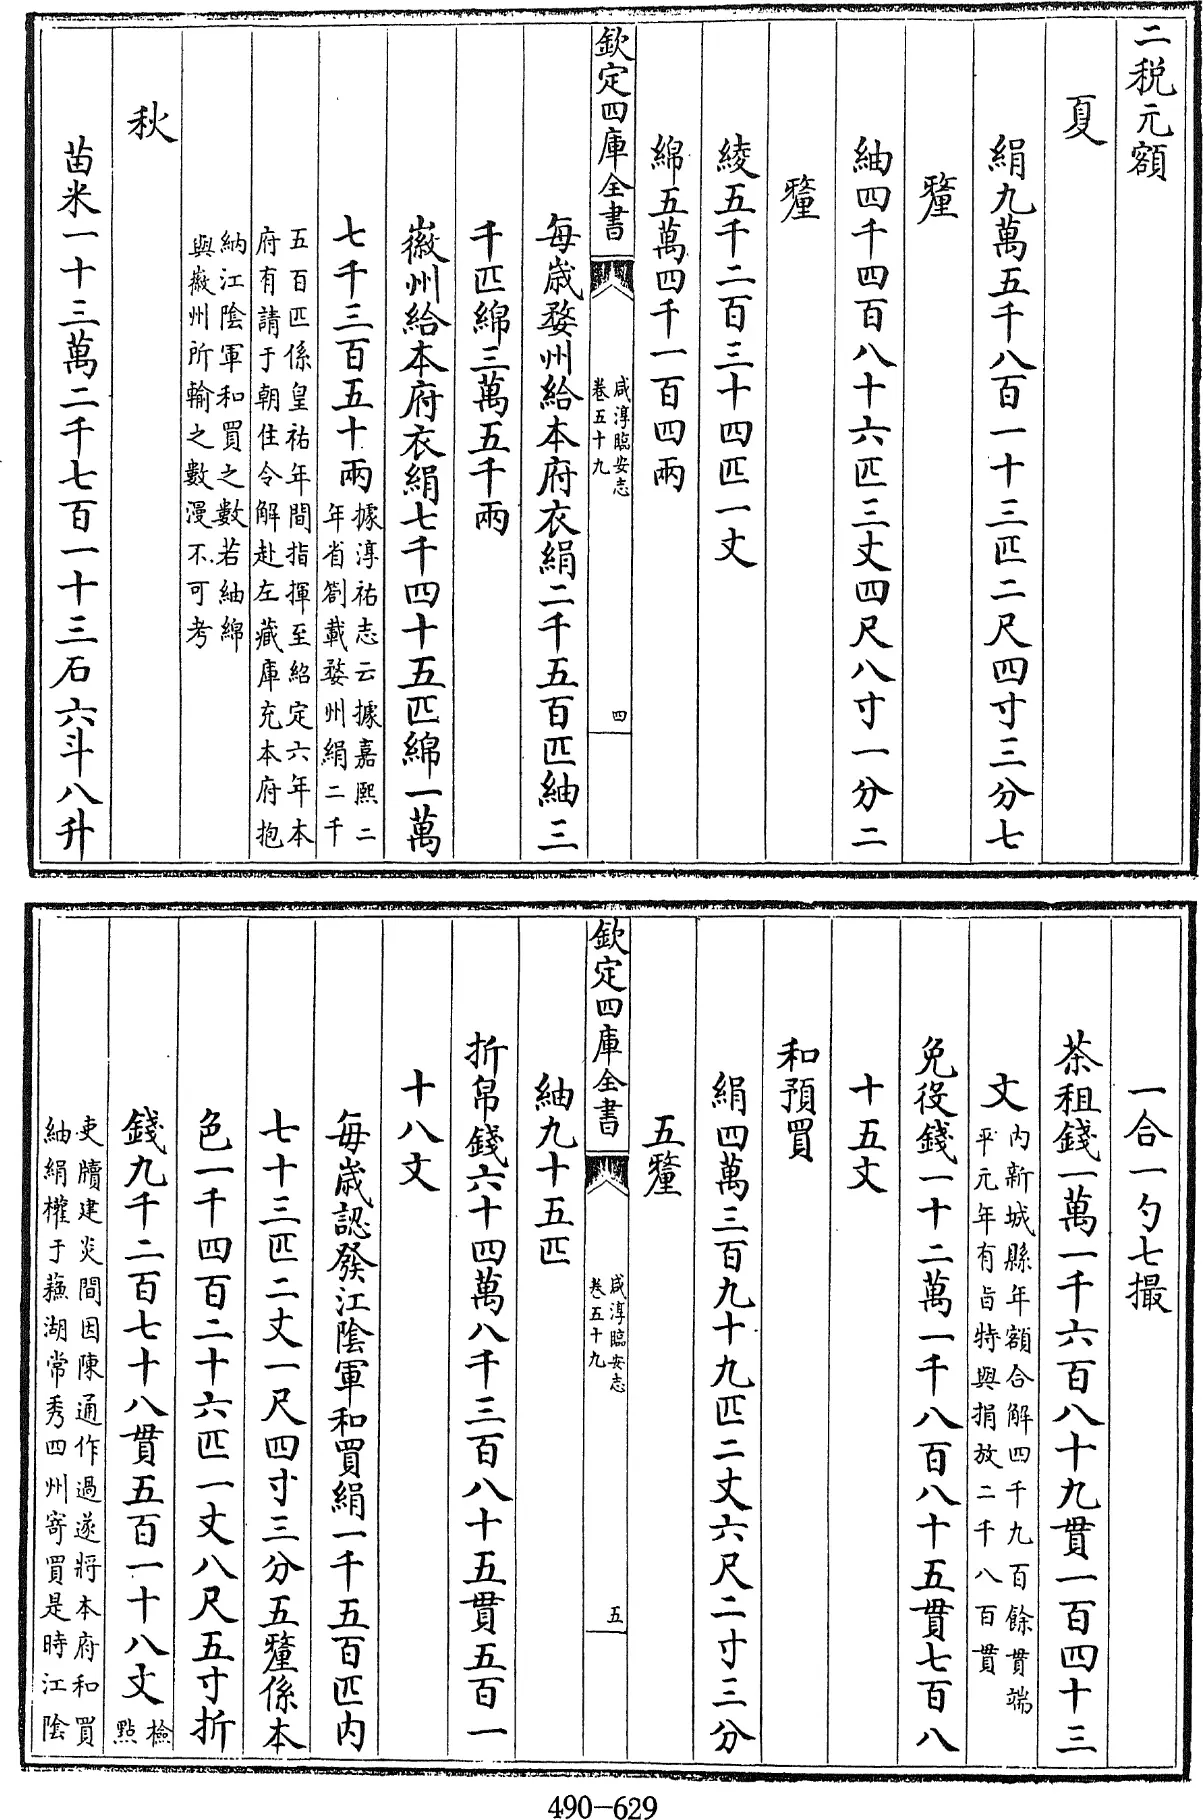 二税元額
夏
絹九萬五千八百一十三匹二尺四寸三分七
釐
紬四千四百八十六匹三丈四尺八寸一分二
釐
綾五千二百三十四匹一丈
綿五萬四千一百四兩
欽定四庫全書
咸淳臨安志
卷五十九
四
每歳婺州給本府衣絹二千五百匹紬三
千匹綿三萬五千兩
徽州給本府衣絹七千四十五匹綿一萬
七千三百五十兩
據淳祐志云據嘉熙二
年省劄載婺州絹二千
五百匹係皇祐年間指揮至紹定六年本
府有請于朝住令解赴左藏庫充本府抱
納江陰軍和買之數若紬綿
與徽州所輸之數漫不可考
秋
苗米一十三萬二千七百一十三石六斗八升
一合一勺七撮
茶租錢一萬一千六百八十九貫一百四十三
文
内新城縣年額合解四千九百餘貫端
平元年有旨特與捐放二千八百貫
免役錢一十二萬一千八百八十五貫七百八
十五文
和預買
絹四萬三百九十九匹二丈六尺二寸三分
五釐
欽定四庫全書
咸淳臨安志
卷五十九
五
紬九十五匹
折帛錢六十四萬八千三百八十五貫五百一
十八文
每歳認發江陰軍和買絹一千五百匹内
七十三匹二丈一尺四寸三分五釐係本
色一千四百二十六匹一丈八尺五寸折
錢九千二百七十八貫五百一十八文
檢
點
吏牘建炎間因陳通作過遂將本府和買
紬絹權于蘓湖常秀四州寄買是時江陰
490-629